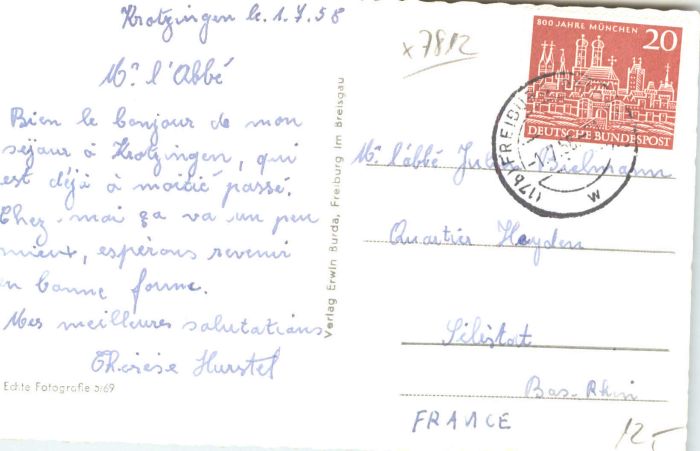 Krotzingen le. 1.7.58
Mr l'Abbé
Bien le bonjour de mon
séjour à Krotzingen, qui
est déjà à moitié passé.
Chez moi ça va un peu
mieux, espérons revenir
en bonne forme.
Mes meilleures salutations
Thérèse Hurstel
Echte Fotografie 5/69
Verlag Erwin Burda, Freiburg im Breisgau
x 7812
800 JAHRE MÜNCHEN
20
DEUTSCHE BUNDESPOST
(17b) FREIBU
w
Mr l'abbé Jules Bielmann
Quartier Heyden
Sélistat
Bas-Rhin
FRANCE
12,-